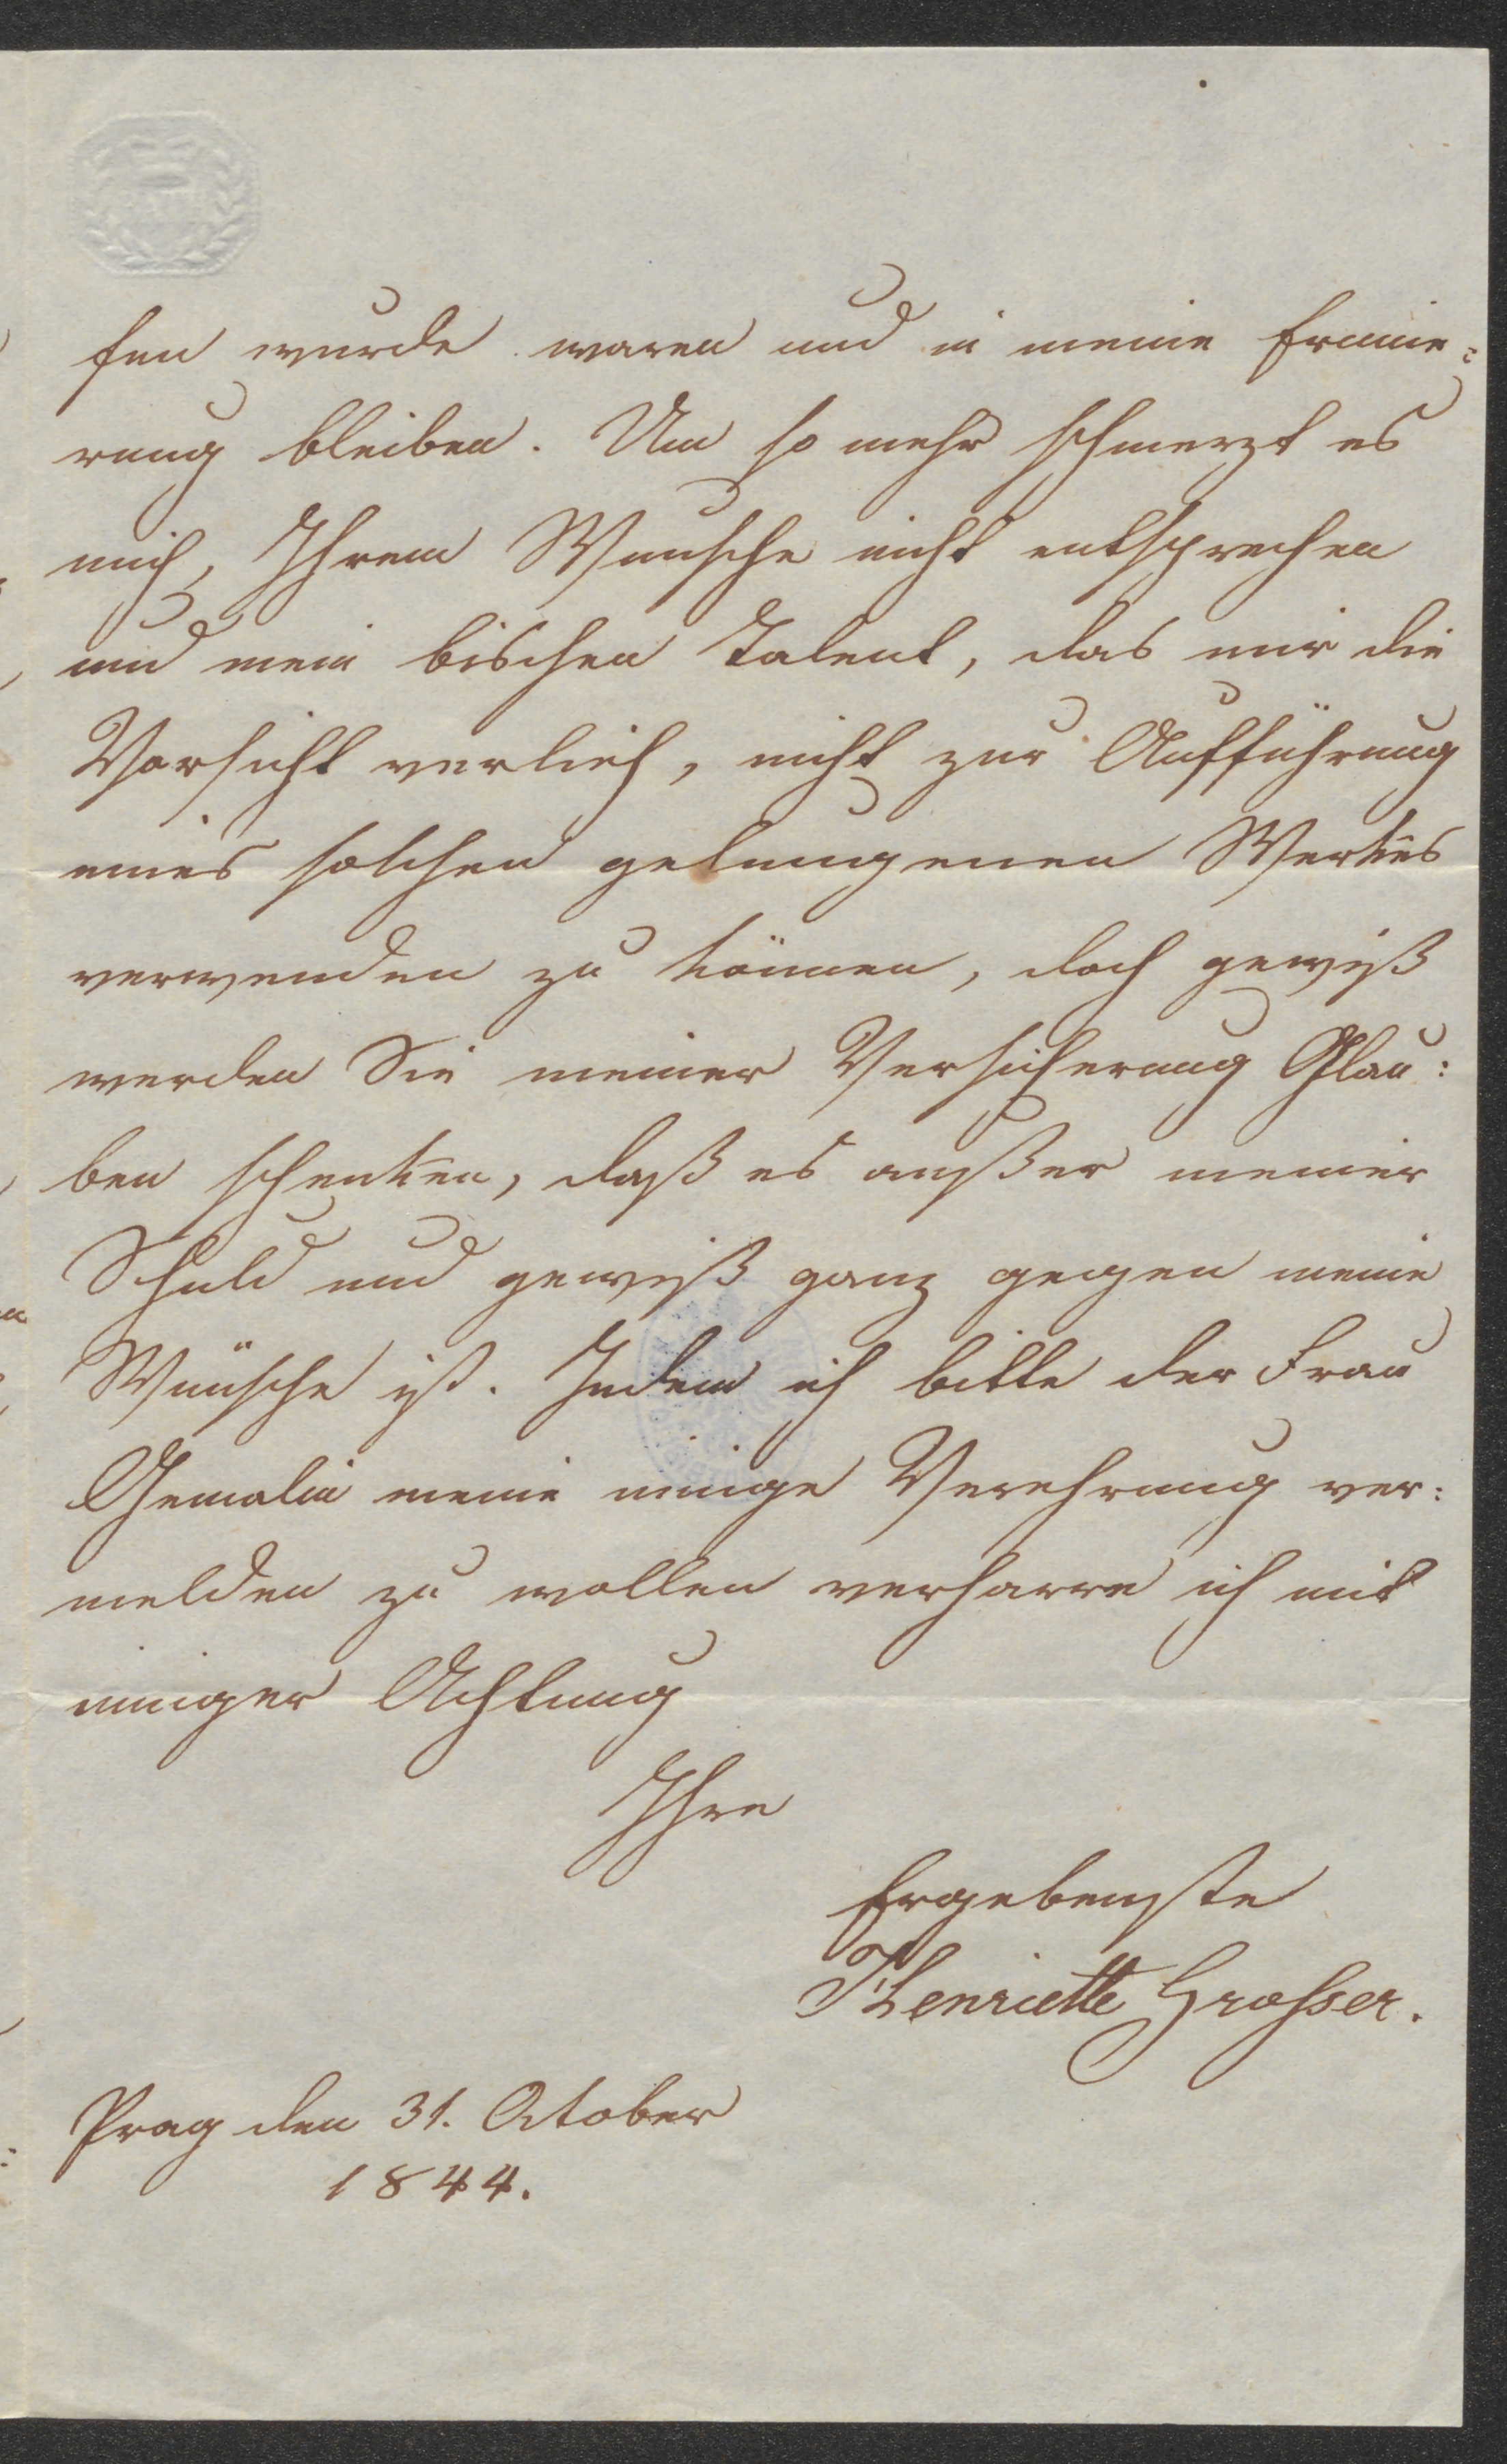 fen wurde waren und in meine Erinne:
rung bleiben. Um so mehr schmerzt es
mich, Ihrem Wunsche nicht entsprechen
und mein bischen Talent, das mir die
Vorsicht verlieh, nicht zur Aufführung
eines solchen gelungenen Werkes
verwenden zu können, doch gewiß
werden Sie meiner Versicherung Glau:
ben schenken, daß es außer meiner
Schuld und gewiß ganz gegen meine
Wünsche ist. Indem ich bitte der Frau
Gemalin meine innige Verehrung ver:
melden zu wollen verharre ich mit
inniger Achtung
Ihre
Ergebenste
Henriette Grosser.
Prag den 31. October
1844.